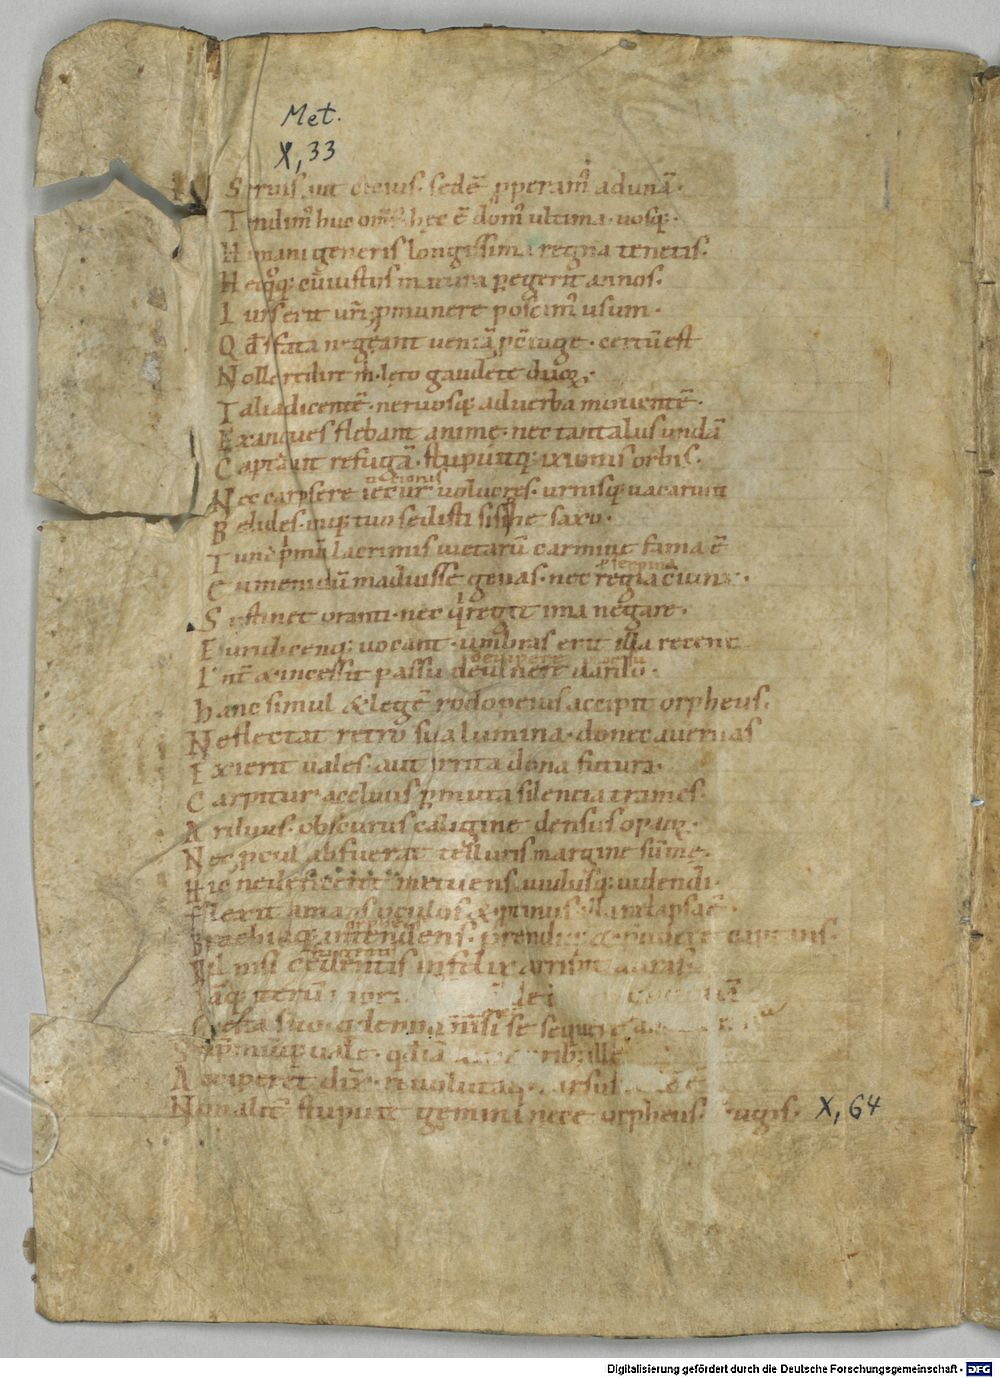 Met.
X, 33
Serius aut citius · sedē pperamꝰ ad unā ·
Tendimꝰ huc om̄s · hęc ē domꝰ ultima · uosq; ·
Humani generis longissima regna tenetis ·
Hec q̊q; cū iustos matura pegerit annos ·
Iuris erit ur̄i p munere poscimꝰ usum ·
Qd̄ si fata negeant ueniā p c̄iuge · certū est
Nolle redire m̍ · leto gaudete duoꝝ ·
Talia dicentē · neruosq; ad uerba mouentē ·
Exangues flebant animę · nec tantalus undā
Captauit refugā · stupuitq; ixionis orbis ·
Nec carpsere iecur uolucres · urnisq; uacarunt
Belides · inq; tuo sedisti sisiphe saxo ·
Tunc pmū lacrimis uictarū carmine fama ē
Eumenidū maduisse genas · nec regia ciunx ·
Sustinet oranti · nec q̍ regit ima negare ·
Euridicenq; uocant · umbras erat illa recente
Int̄ & incessit passu de uulnere tardo ·
Hanc simul & legē rodopeius accipit orpheus ·
Ne flectat retro sua lumina · donec auernas
Exierit ualles · aut irrita dona futura ·
Carpitur accliuus p muta silencia trames ·
Arduus · obscurus caligine densus opaca ·
Nec pcul abfuerat telluris margine sūmę ·
Hic ne deficeret metuens auidusq; uidendi ·
Flexit amans oculos & ptinus illa relapsa ē ·
Brachiaq; intendens · prendiq; & prendere captans ·
Nil nisi cedentis infelix arripit auras
Iāq; iterū de
questa suo · q̍d enim nisi se
Supmūq; uale · qd̄ iā ille
Acciperet dix̄ · reuolutaq;
Non alit̄ stupuit gemina nece orpheus ·
X, 64
Digitalisierung gefördert durch die Deutsche Forschungsgemeinschaft - DFG